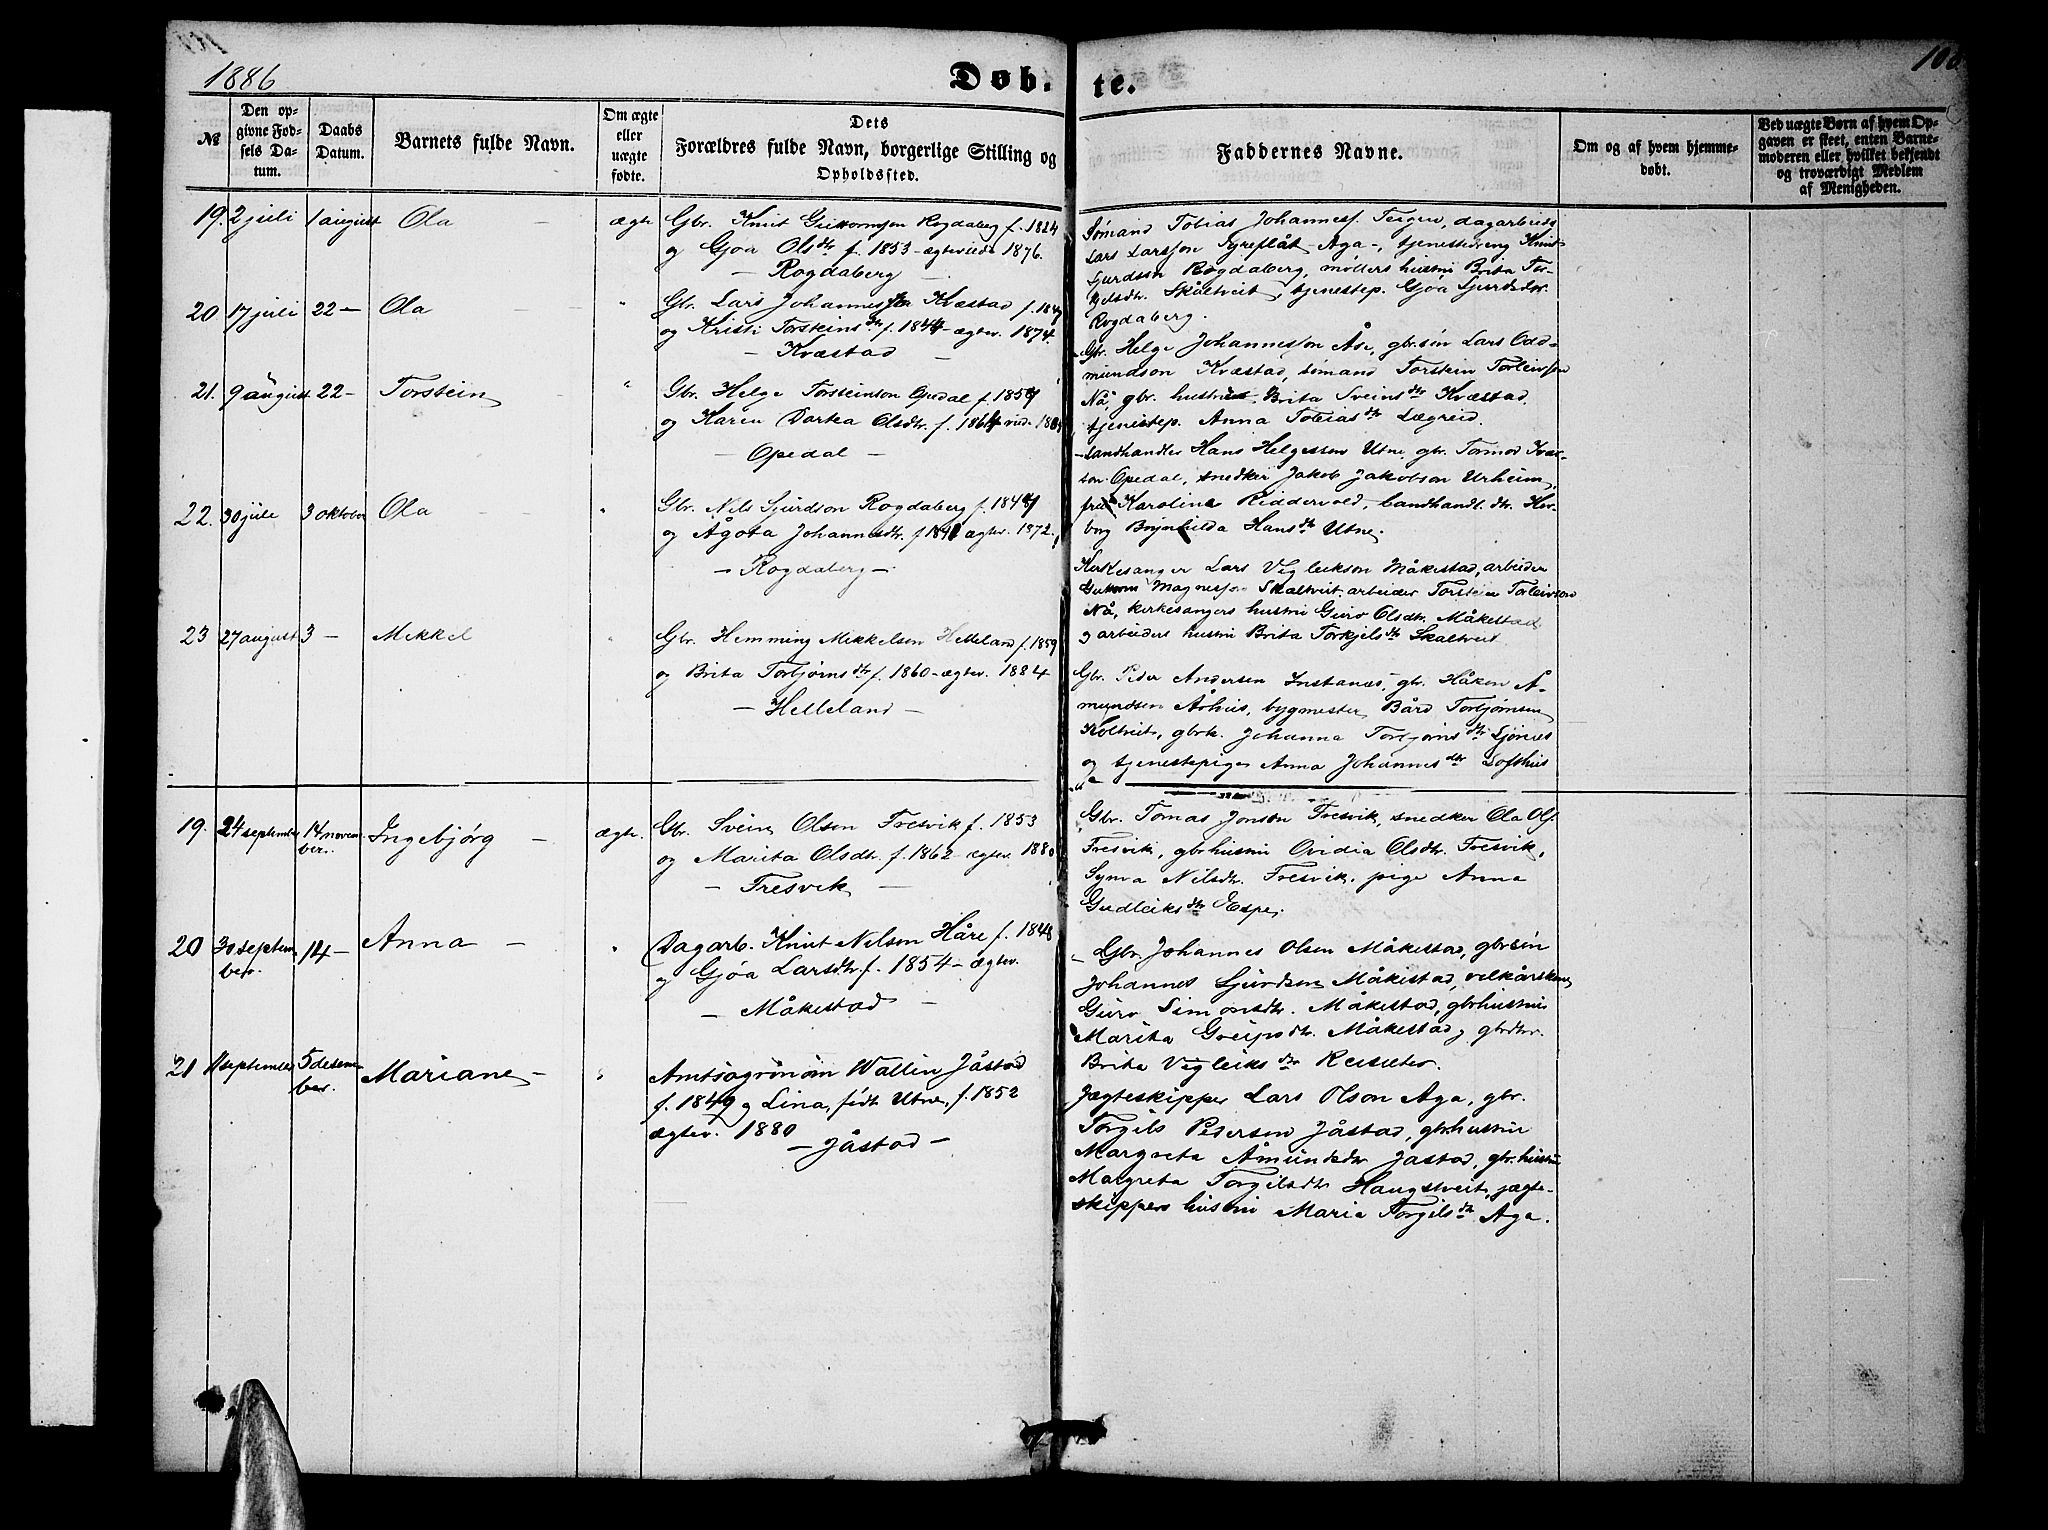 1886
Døb-
te.
108
№
Den op-
givne Fød-
sels Da-
tum.
Daabs
Datum.
Barnets fulde Navn.
Om ægte
eller
uægte
fødte.
Dets
Forældres fulde Navn, borgerlige Stilling og
Opholdssted.
Faddernes Navne.
Om og af hvem hjemme-
døbt.
Ved uægte Børn af hvem Op-
gaven er skeet, enten Barne-
moderen eller hvilket bekjendt
og troværdigt Medlem
af Menigheden.
19. 2 juli 1 august Ola – ægte
Gbr. Knut Guttormson Rogdaberg f. 1824
og Gjøa Olsdtr f. 1853 – ægteviede 1876.
– Rogdaberg –
Sømand Tobias Johannesf. Teigen, dagarbeid.
Lars Larsson Syreflåt – Aga –, tjenestedreng Knut
Sjurdsson Rogdaberg, møllers hustru Brita Tor-
kjelsdtr. Skåltveit, tjenestep. Gjøa Sjurdsdtr.
Rogdaberg.
20 17 juli 22 – Ola – "
Gbr. Lars Johannesson Kvæstad f. 1849
og Kristi Torsteinsdtr f. 1844 – ægtev. 1874.
– Kvæstad –
Gbr. Helge Johannesson Åse, gbr.søn Lars Odd-
mundson Kvæstad, sømand Torstein Torleivson
Nå, gbr. hustru Brita Sveinsdtr Kvæstad.
tjenestep. Anna Tobiasdtr Lægreid.
21. 9 august 22 – Torstein "
Gbr. Helge Torsteinson Opedal f. 1859
og Karen Dortea Olsdtr. f. 1864 – vied.
– Opedal –
– Landhandler Hans Helgesson Utne, gbr. Tormod Ivar-
son Opedal, snedker Jakob Jakobson Urheim,
frøken Karoline Riddervold, landhandl. dtr. Her-
borg Brynhilda Hansdtr Utne.
22. 30 juli 3 oktober Ola – "
Gbr. Nils Sjurdson Rogdaberg f. 1849
og Ågota Johannesdtr. f. 1841 ægtev. 1872.
– Rogdaberg –
Kirkesanger Lars Vigleikson Måkestad, arbeider
Guttorm Magnesson Skåltveit, arbeider Torstein Torleivson
Nå, kirkesangers hustru Guro Olsdtr. Måkestad
og arbeiders hustru Brita Torkjelsdtr Skåltveit
23 27 august 3 – Mekkel "
Gbr. Hemming Mekkelson Helleland f. 1859
og Brita Torbjørnsdtr f. 1860 – ægtev. 1884
– Helleland –
Gbr. Peder Andersen Instanes, gbr. Håkon A-
mundsen Århus, bygmester Bård Torbjørnsen
Koltveit, gbrk. Johanna Torbjørnsdtr Djønes
og tjenestepige Anna Johannesdtr Lofthus
19. 24 september 14 novem-
ber. Ingebjørg – ægte.
Gbr. Svein Olson Tresvik f. 1853
og Marita Olsdtr. f. 1862 – ægtev. 1880
– Tresvik –
Gbr. Tomas Jonson Tresvik, snedker Ola Ols.
Tresvik, gbrhustru Ovidia Olsdtr. Tresvik,
Synva Nilsdtr. Tresvik, pige Anna
Gudleiksdtr Espe.
20 30 septem-
ber. 14 – Anna – "
Dagarb. Knut Nelson Håre f. 1848
og Gjøa Larsdtr f. 1854 – ægtev.
– Måkestad –
– Gbr. Johannes Olsen Måkestad, gbrsøn
Johannes Sjurdsen Måkestad, velkårskone
Guro Simonsdtr. Måkestad, gbrhustru
Marita Greipsdtr. Måkestad, gbrdtr.
Brita Vigleiksdtr Reisæter.
21 11 september 5 desem-
ber. Mariane – "
Amtsagronom Wallin Jåstad
f. 1849 og Lina, født Utne, f. 1852
ægtev. 1880
– Jåstad –
Jægteskipper Lars Olson Aga, gbr.
Torgils Pederson Jåstad, gbrhustru
Margreta Åmundsdtr Jåstad, gbr.hustru
Margreta Torgilsdtr Haugstveit, jægte-
skippers hustru Maria Torgilsdtr Aga.